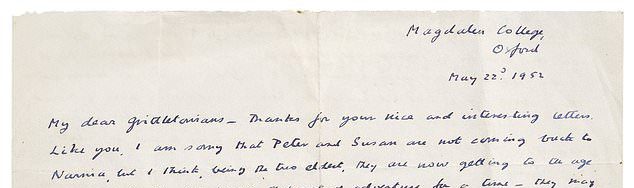 Magdalen College,
Oxford
May 22? 1952
My dear Grittletonians – Thanks for your nice and interesting letters.
Like you, I am sorry that Peter and Susan are not coming back to
Narnia, but I think, being the two eldest, they are now getting to an age
adventure for a time – they may